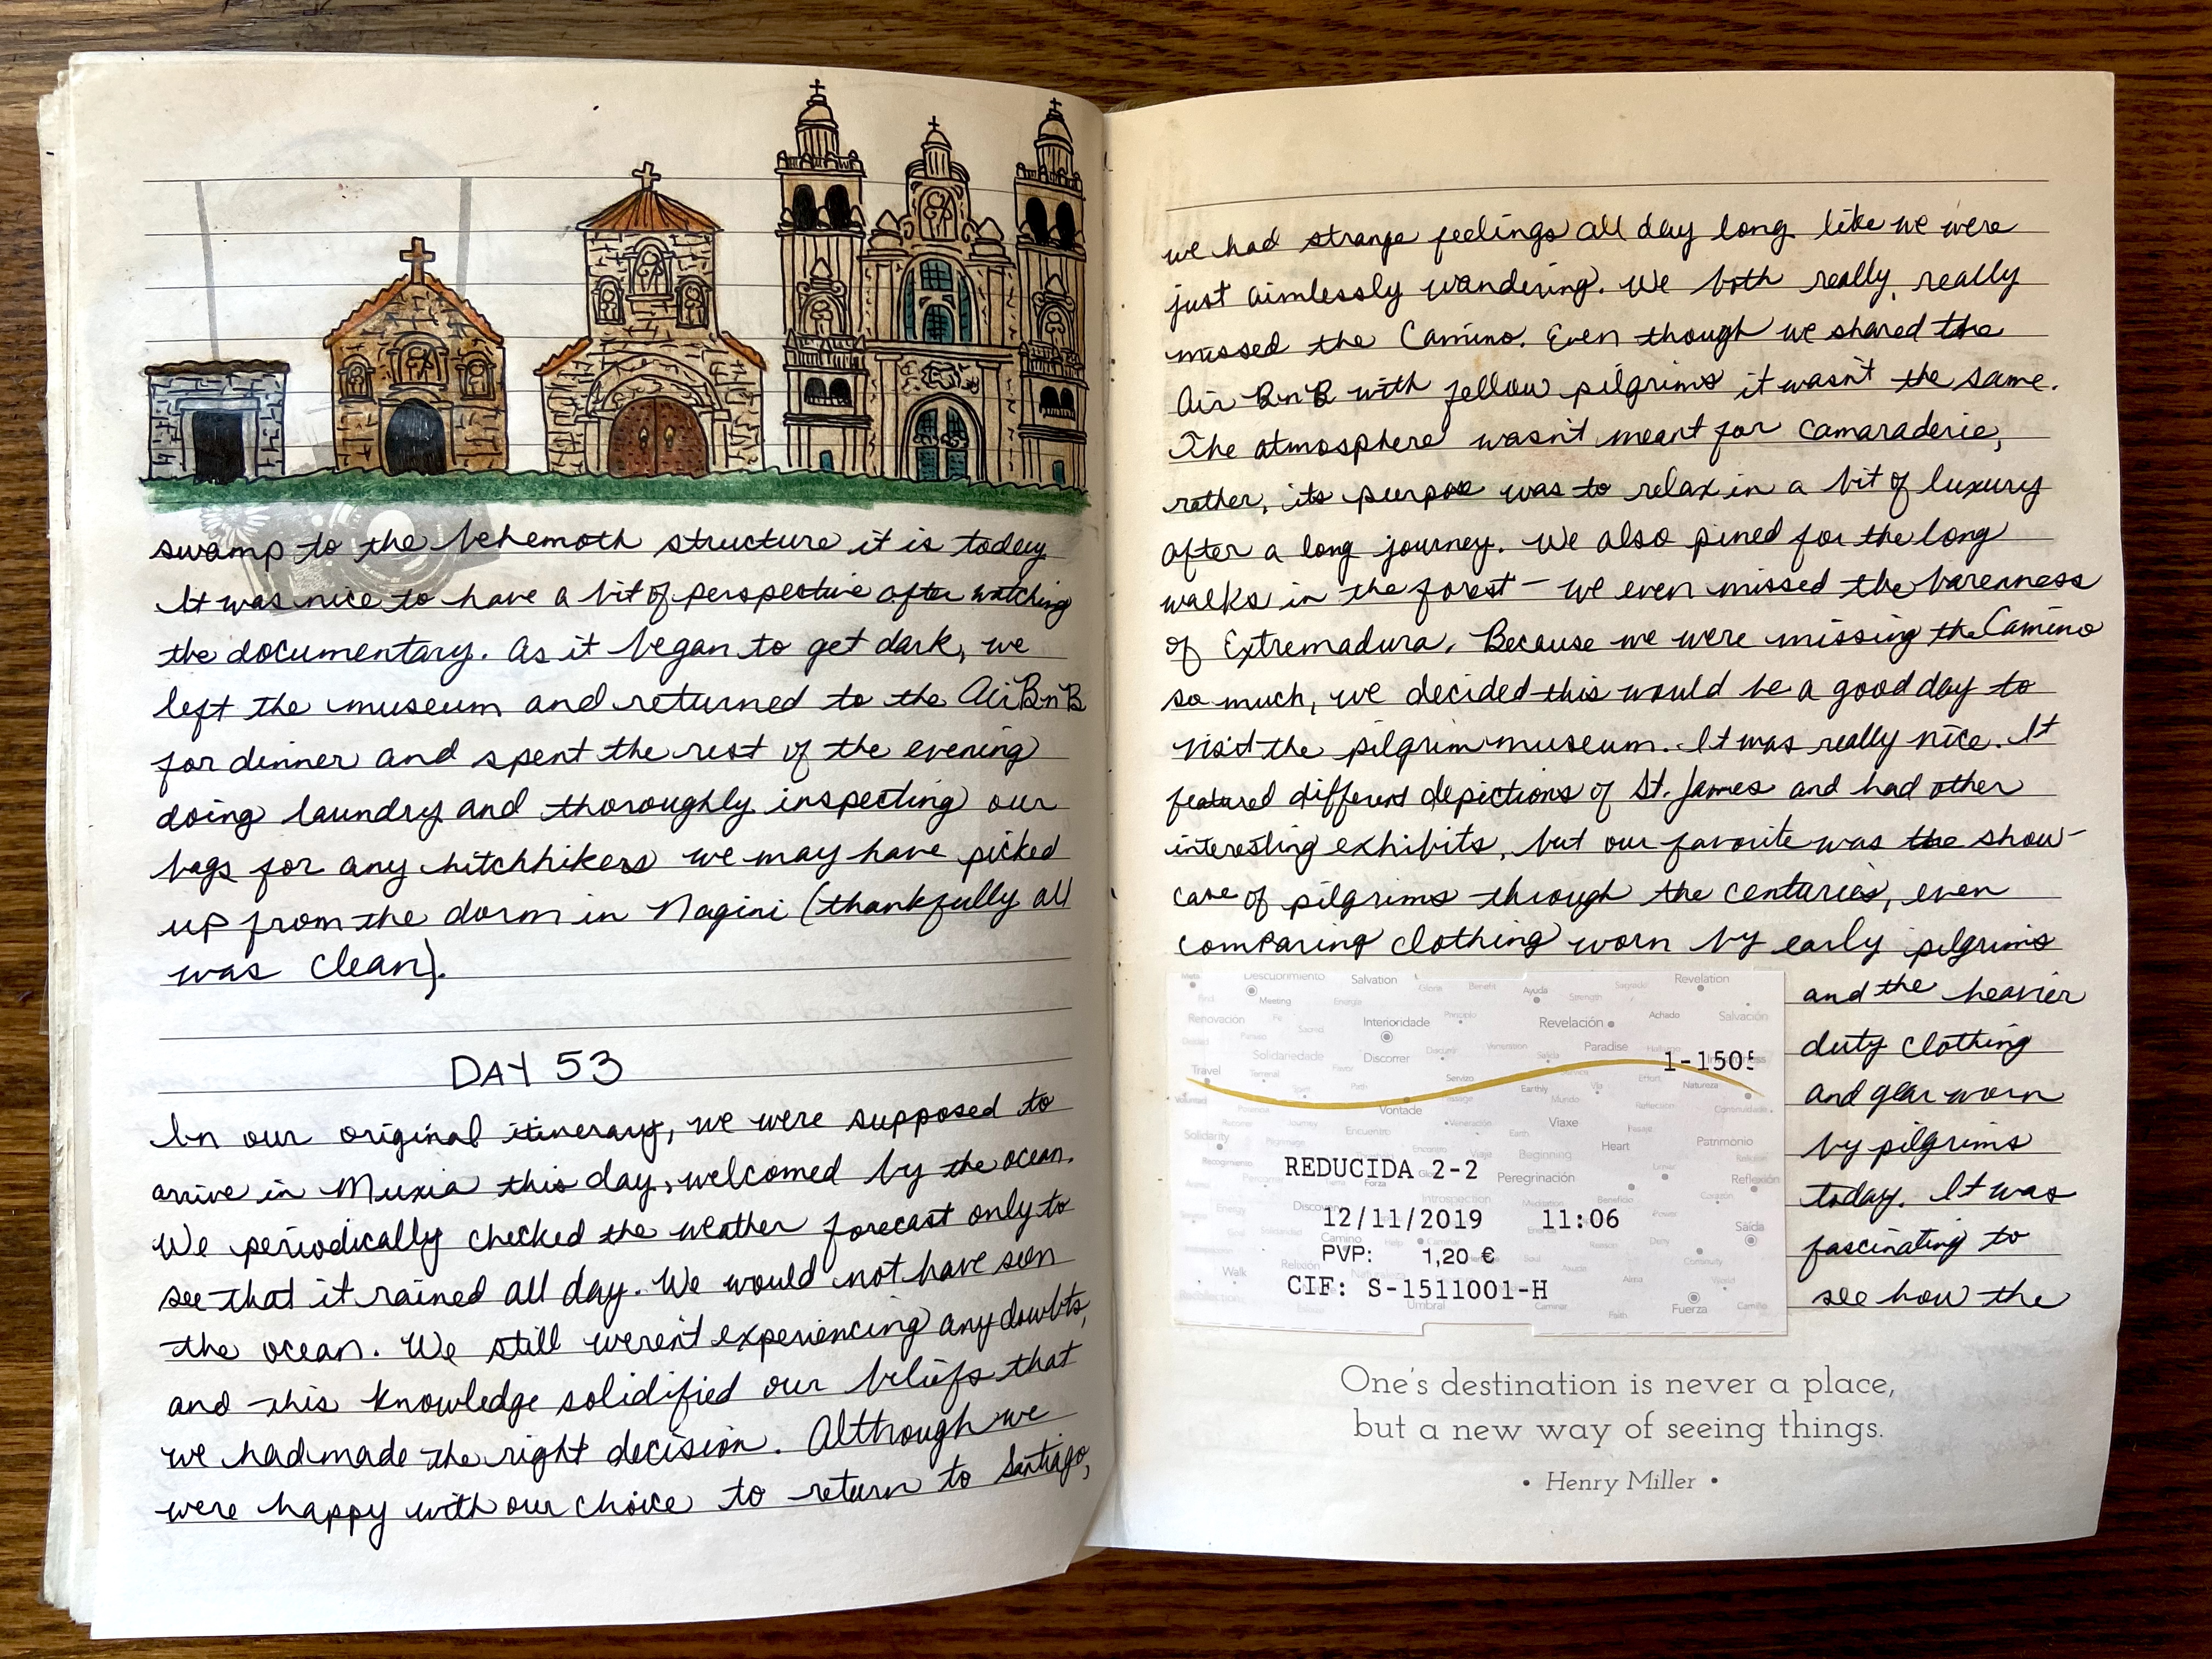 swamp to the behemoth structure it is today
It was nice to have a bit of perspective after watching
the documentary. As it began to get dark, we
left the museum and returned to the AirBnB
for dinner and spent the rest of the evening
doing laundry and thoroughly inspecting our
bags for any hitchhikers we may have picked
up from the dorm in Nagini (thankfully all
was clean).
DAY 53
In our original itinerary, we were supposed to
arrive in Muxia this day, welcomed by the ocean.
We periodically checked the weather forecast only to
see that it rained all day. We would not have seen
the ocean. We still weren't experiencing any doubts,
and this knowledge solidified our beliefs that
we had made the right decision. Although we
were happy with our choice to return to Santiago,
we had strange feelings all day long like we were
just aimlessly wandering. We both really, really
missed the Camino. Even though we shared the
Air BnB with fellow pilgrims it wasn't the same.
The atmosphere wasn't meant for camaraderie,
rather, its purpose was to relax in a bit of luxury
after a long journey. We also pined for the long
walks in the forest — we even missed the barenness
of Extremadura. Because we were missing the Camino
so much, we decided this would be a good day to
visit the pilgrim museum. It was really nice. It
featured different depictions of St. James and had other
interesting exhibits, but our favorite was the show-
case of pilgrims through the centuries, even
comparing clothing worn by early pilgrims
and the heavier
duty clothing
and gear worn
by pilgrims
today. It was
fascinating to
see how the
Descubrimento Salvation Revelation
Meeting Ayuda
Renovación Interioridade Revelación Achado Salvación
Solidariedade Discorrer Paradise
1-1505
Travel Servizo Earthly Natureza
Vontade Mundo
Encuentro Viaxe
Solidarity Heart Patrimonio
Beginning
REDUCIDA 2-2 Peregrinación Reflexión
Introspection
12/11/2019 11:06
Camino Saída
PVP: 1,20 €
Walk Relixión
CIF: S-1511001-H
Umbral Fuerza
One's destination is never a place,
but a new way of seeing things.
• Henry Miller •